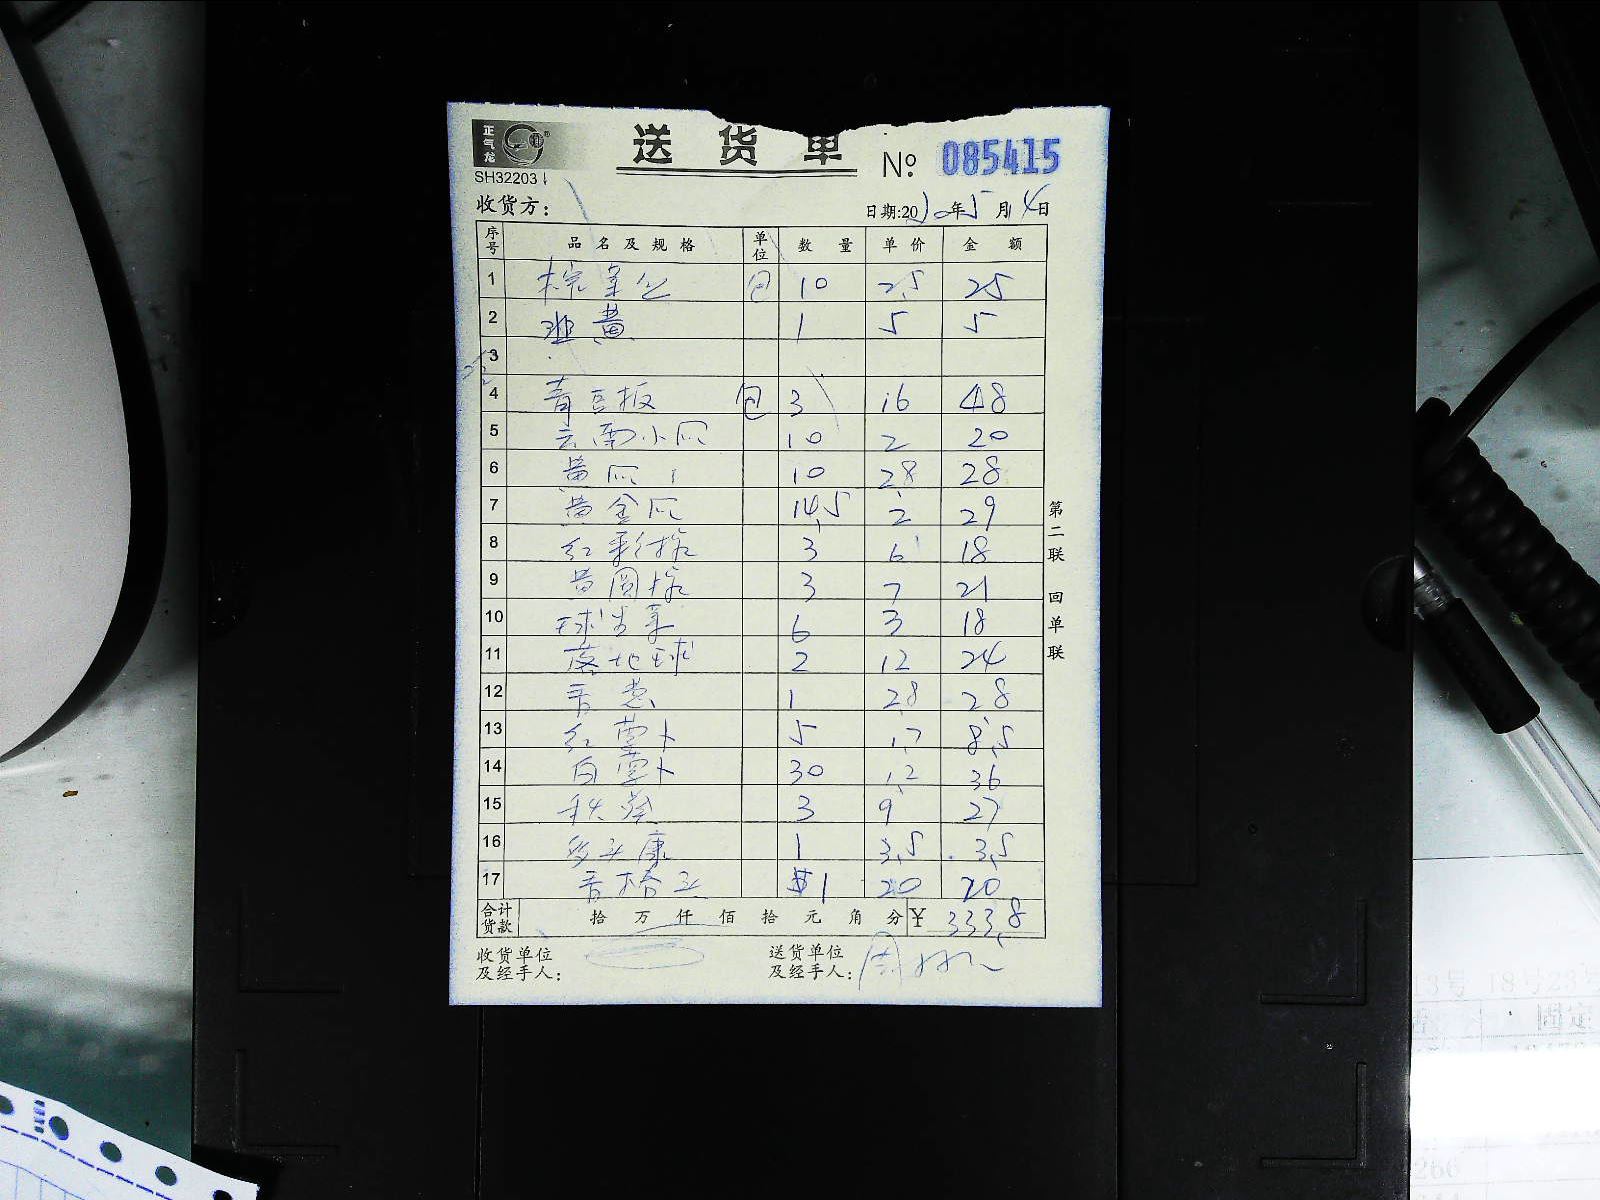 正气龙
送货单
№ 085415
SH32203
收货方: 日期:2020年5月4日
序号 品名及规格 单位 数量 单价 金额
1 包 10 2.5 25
2 韭黄 1 5 5
3
4 青豆板 包 3 16 48
5 云南小瓜 10 2 20
6 黄瓜 10 2.8 28
7 黄金瓜 14.5 2 29
8 红彩椒 3 6 18
9 黄圆椒 3 7 21
10 球生菜 6 3 18
11 落地球 2 12 24
12 香葱 1 2.8 2.8
13 红萝卜 5 1.7 8.5
14 白萝卜 30 1.2 36
15 秋葵 3 9 27
16 1 3.5 3.5
17 1 20 20
合计货款 拾万仟佰拾元角分 ¥ 333.8
收货单位及经手人: 送货单位及经手人: 周
第二联 回单联
13号 18号23号
固定